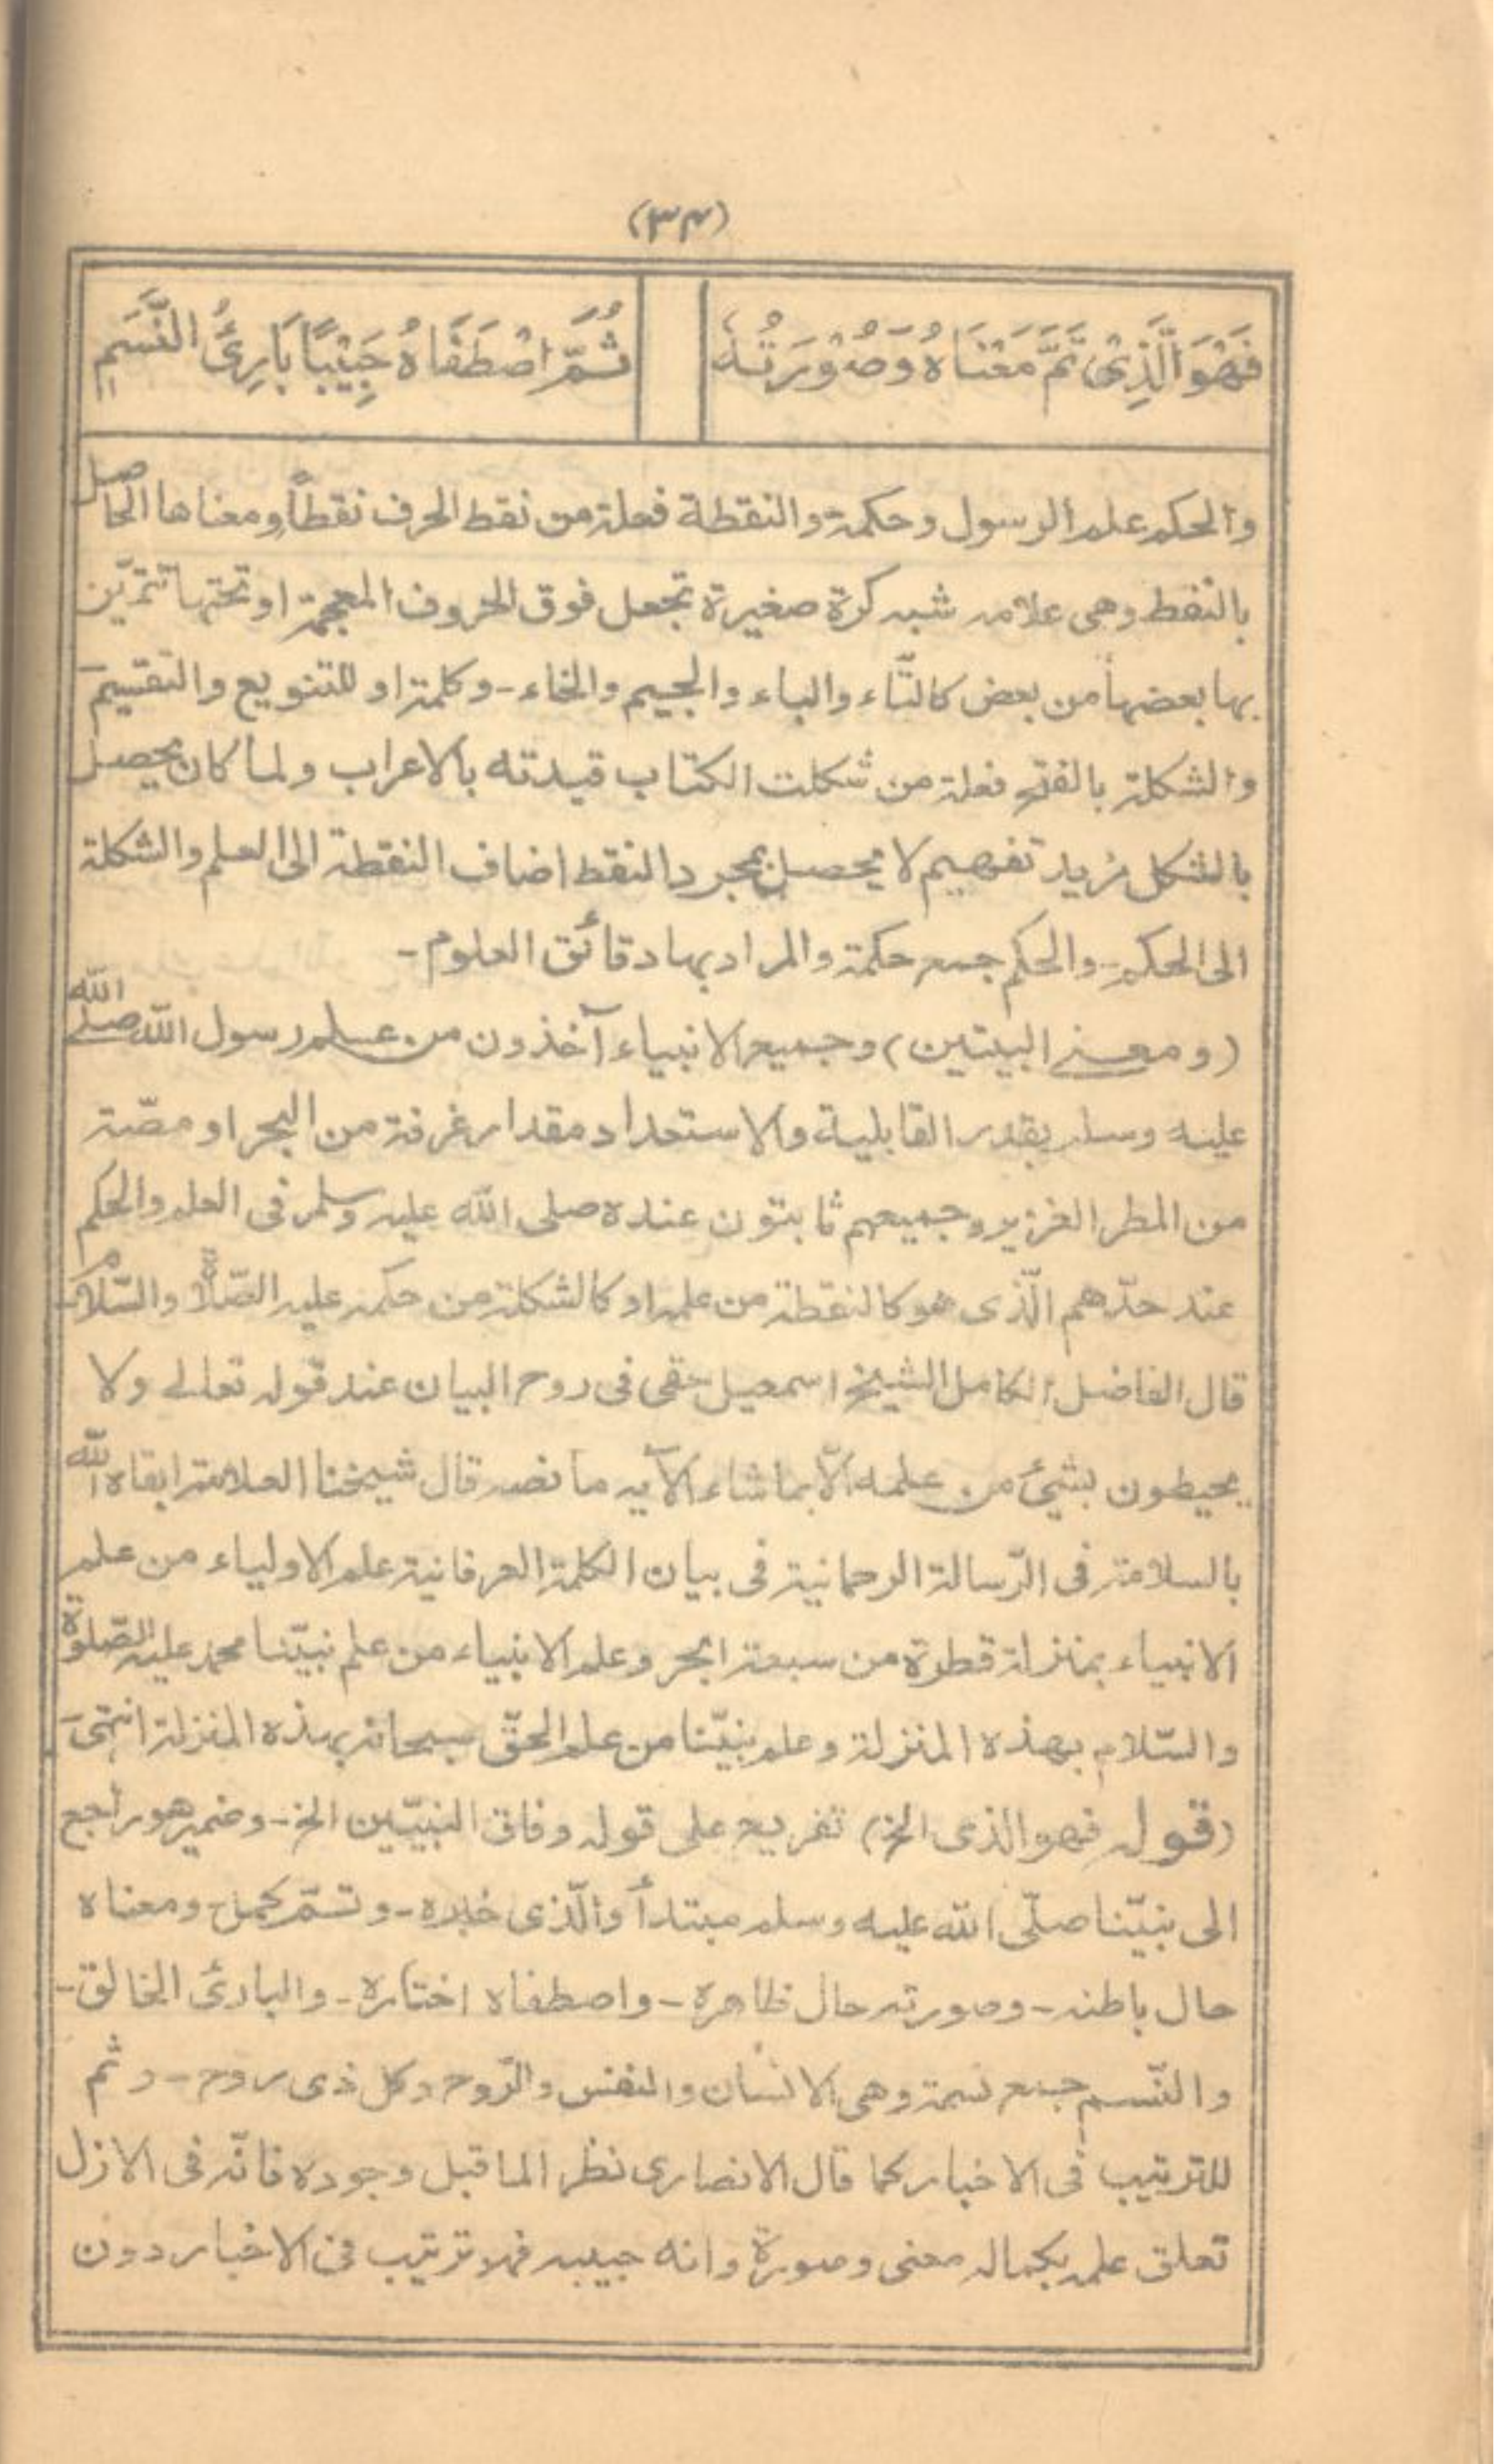 (٣٤)
فَهْوَ الَّذِىْ تَمَّ مَعْنَاهُ وَصُوْرَتُهٗ
ثُمَّ اصْطَفَاهُ حَبِيْبًا بَارِئُ النَّسَمِ
والحكم علم الرسول وحكمة والنقطة فعلة من نقط الحرف نقطاً ومعناها الحاصل
بالنقط وهى علامه شبه كرة صغيرة تجعل فوق الحروف المعجمة او تحتها تتميّز
بها بعضها من بعض كالتّاء والباء والجيم والخاء - وكلمة او للتنويع والتقسيم
والشكلة بالفتح فعلة من شكلت الكتاب قيدته بالاعراب ولما كان يحصل
بالشكل مزيد تفهيم لا يحصل بمجرد النقط اضاف النقطة الى العلم والشكلة
الى الحكم - والحكم جمع حكمة والمراد بها دقائق العلوم -
(ومعنى البيتين) وجميع الانبياء آخذون من علم رسول الله صلى الله
عليه وسلم بقدر القابلية والاستعداد مقدار غرفة من البحر او مصّة
من المطر الغزير وجميعهم ثابتون عنده صلى الله عليه وسلم فى العلم والحكم
عند حدّهم الّذى هو كالنقطة من علمه او كالشكلة من حكمه عليه الصّلاة والسّلام
قال الفاضل الكامل الشيخ اسمعيل حقى فى روح البيان عند قوله تعالى ولا
يحيطون بشئ من علمه الّا بما شاء الآيه ما نصه قال شيخنا العلامة ابقاه الله
بالسلامة فى الرّسالة الرحمانية فى بيان الكلمة العرفانية علم الاولياء من علم
الانبياء بمنزلة قطرة من سبعة ابحر وعلم الانبياء من علم نبيّنا محمد عليه الصّلوة
والسّلام بهذه المنزلة وعلم نبيّنا من علم الحقّ سبحانه بهذه المنزلة انتهىٰ
(قوله فهو الذى الخ) تفريع على قوله وفاق النبيّين الخ - وضمير هو راجع
الى نبيّنا صلّى الله عليه وسلم مبتدأ والّذى خبره - وتمّ كمل - ومعناه
حال باطنه - وصورته حال ظاهره - واصطفاه اختاره - والبارئ الخالق -
والنّسم جمع نسمة وهى الانسان والنفس والرّوح وكل ذى روح - وثم
للترتيب فى الاخبار كما قال الانصارى نظر الما قبل وجوده فانّه فى الازل
تعلق علمه بكماله معنى وصورة وانه حبيبه فهو ترتيب فى الاخبار دون